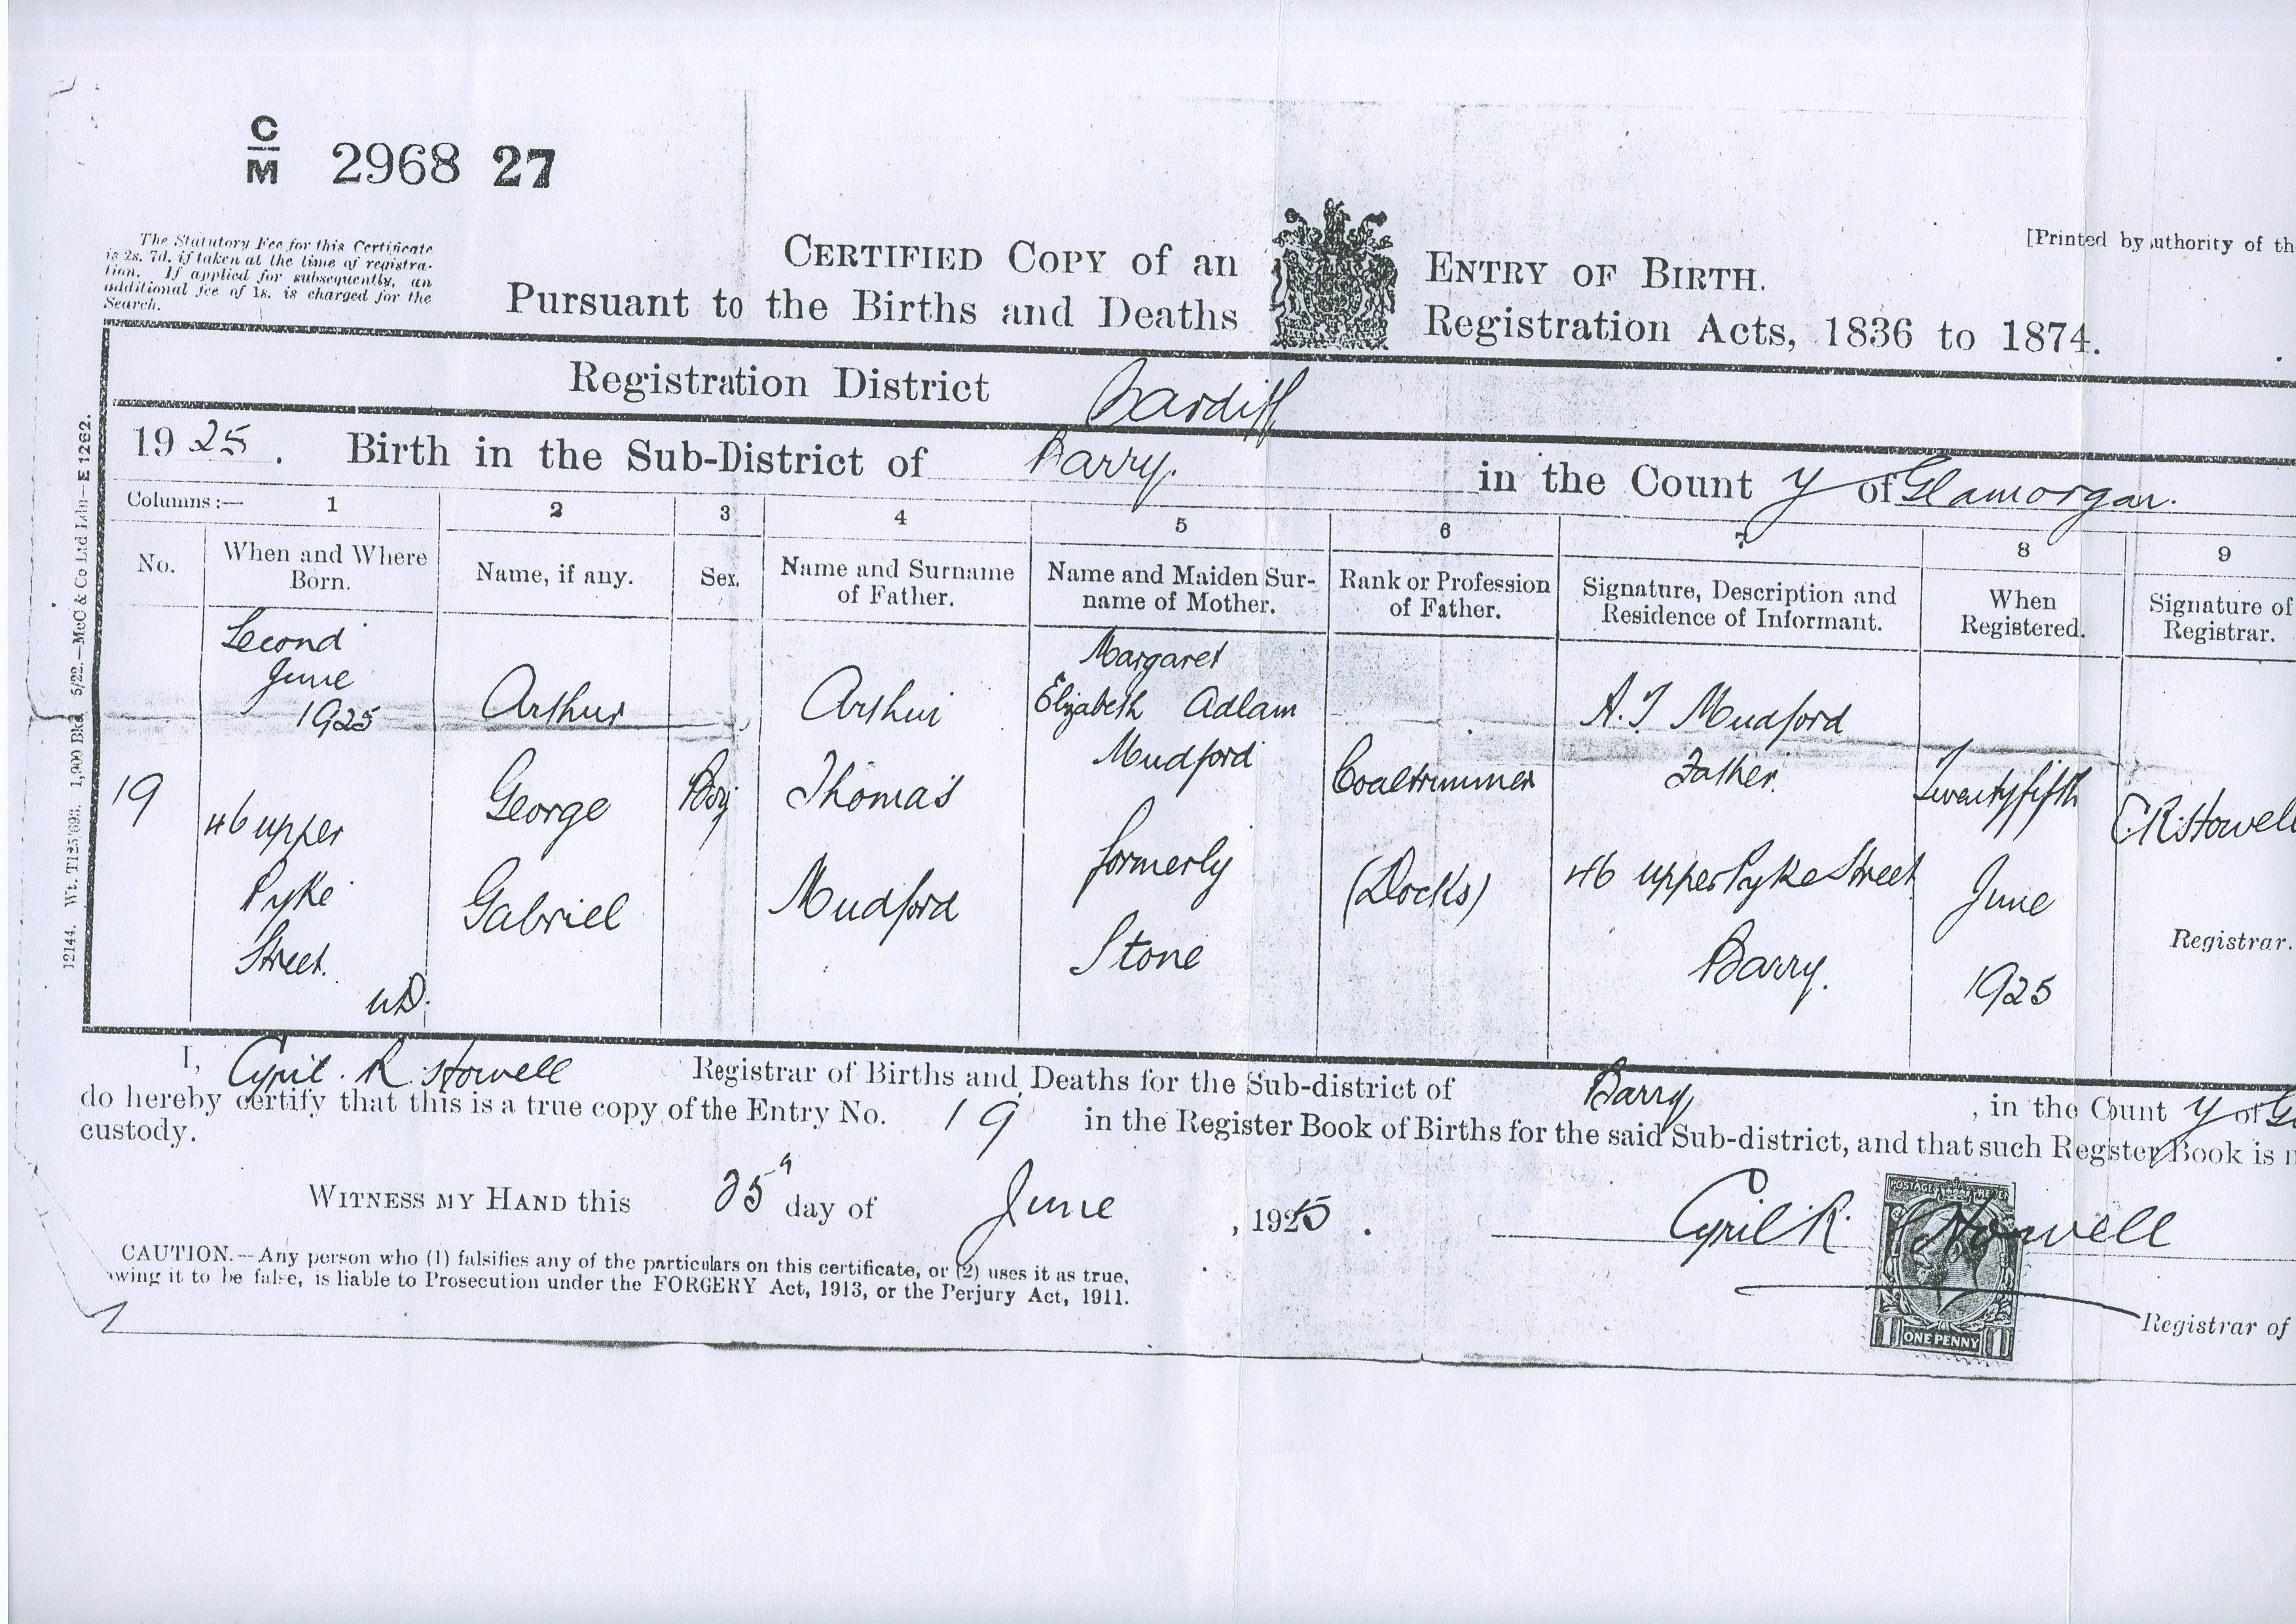 C
M 2968 27
The Statutory Fee for this Certificate
is 2s. 7d. if taken at the time of registra-
tion. If applied for subsequently, an
additional fee of 1s. is charged for the
Search.
CERTIFIED COPY of an ENTRY OF BIRTH.
Pursuant to the Births and Deaths Registration Acts, 1836 to 1874.
[Printed by uthority of th
Registration District Cardiff
1925. Birth in the Sub-District of Barry. in the County of Glamorgan.
Columns:— 1 2 3 4 5 6 7 8 9
No. When and Where Born. Name, if any. Sex. Name and Surname of Father. Name and Maiden Surname of Mother. Rank or Profession of Father. Signature, Description and Residence of Informant. When Registered. Signature of Registrar.
19
Second
June
1925
46 upper
Pyke
Street.
UD.
Arthur
George
Gabriel
Boy
Arthur
Thomas
Mudford
Margaret
Elizabeth Adlam
Mudford
formerly
Stone
Coaltrimmer
(Docks)
A. T Mudford
Father.
46 upper Pyke Street
Barry.
Twentyfifth
June
1925
C.R. Stowell
Registrar.
I, Cyril. R. Stowell Registrar of Births and Deaths for the Sub-district of Barry, in the County of Gl
do hereby certify that this is a true copy of the Entry No. 19 in the Register Book of Births for the said Sub-district, and that such Register Book is
custody.
WITNESS MY HAND this 25th day of June, 1925.
Cyril R. Stowell
POSTAGE REVEN
ONE PENNY
Registrar of
CAUTION.—Any person who (1) falsifies any of the particulars on this certificate, or (2) uses it as true,
wing it to be false, is liable to Prosecution under the FORGERY Act, 1913, or the Perjury Act, 1911.
12144. Wt. T125/693. 1,900 Bks. 5/22.—McC & Co Ltd Ldn—E 1262.